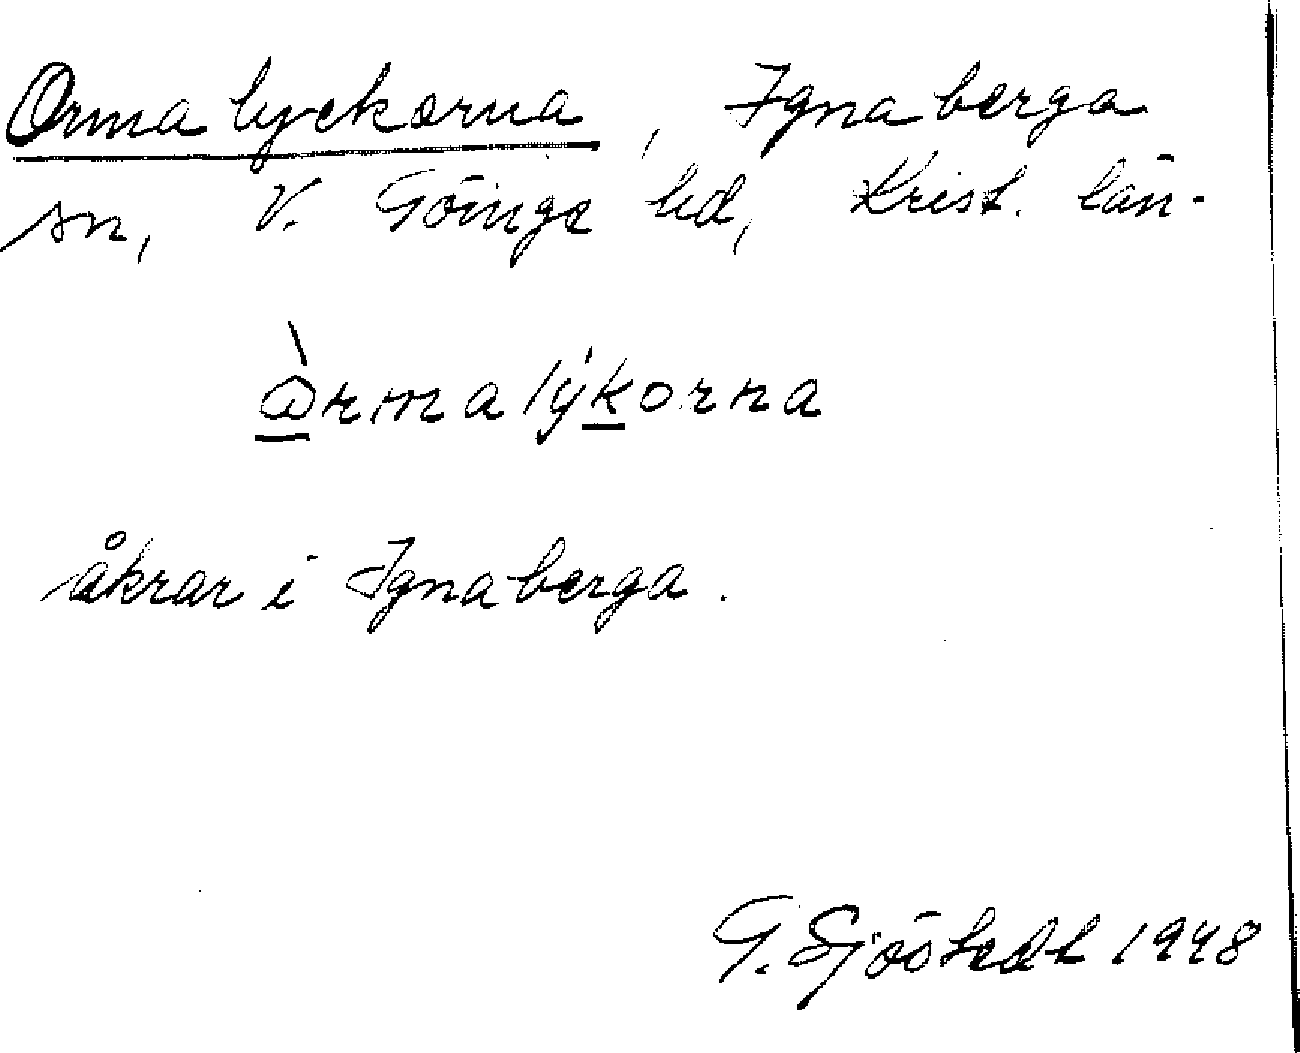 Ormalyckorna, Ignaberga
sn, V. Göinge hd, Krist. län.
ὼrmalýkorna
åkrar i Ignaberga.
G. Sjöstedt 1948